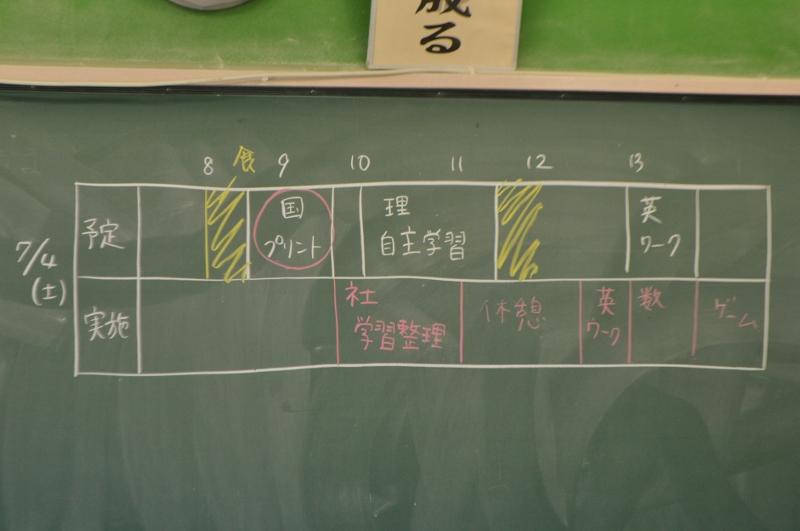 成る
8 食 9 10 11 12 13
7/4
(土)
予定
国
プリント
理
自主学習
英
ワーク
実施
社
学習整理
休憩
英
ワーク
数
ゲーム